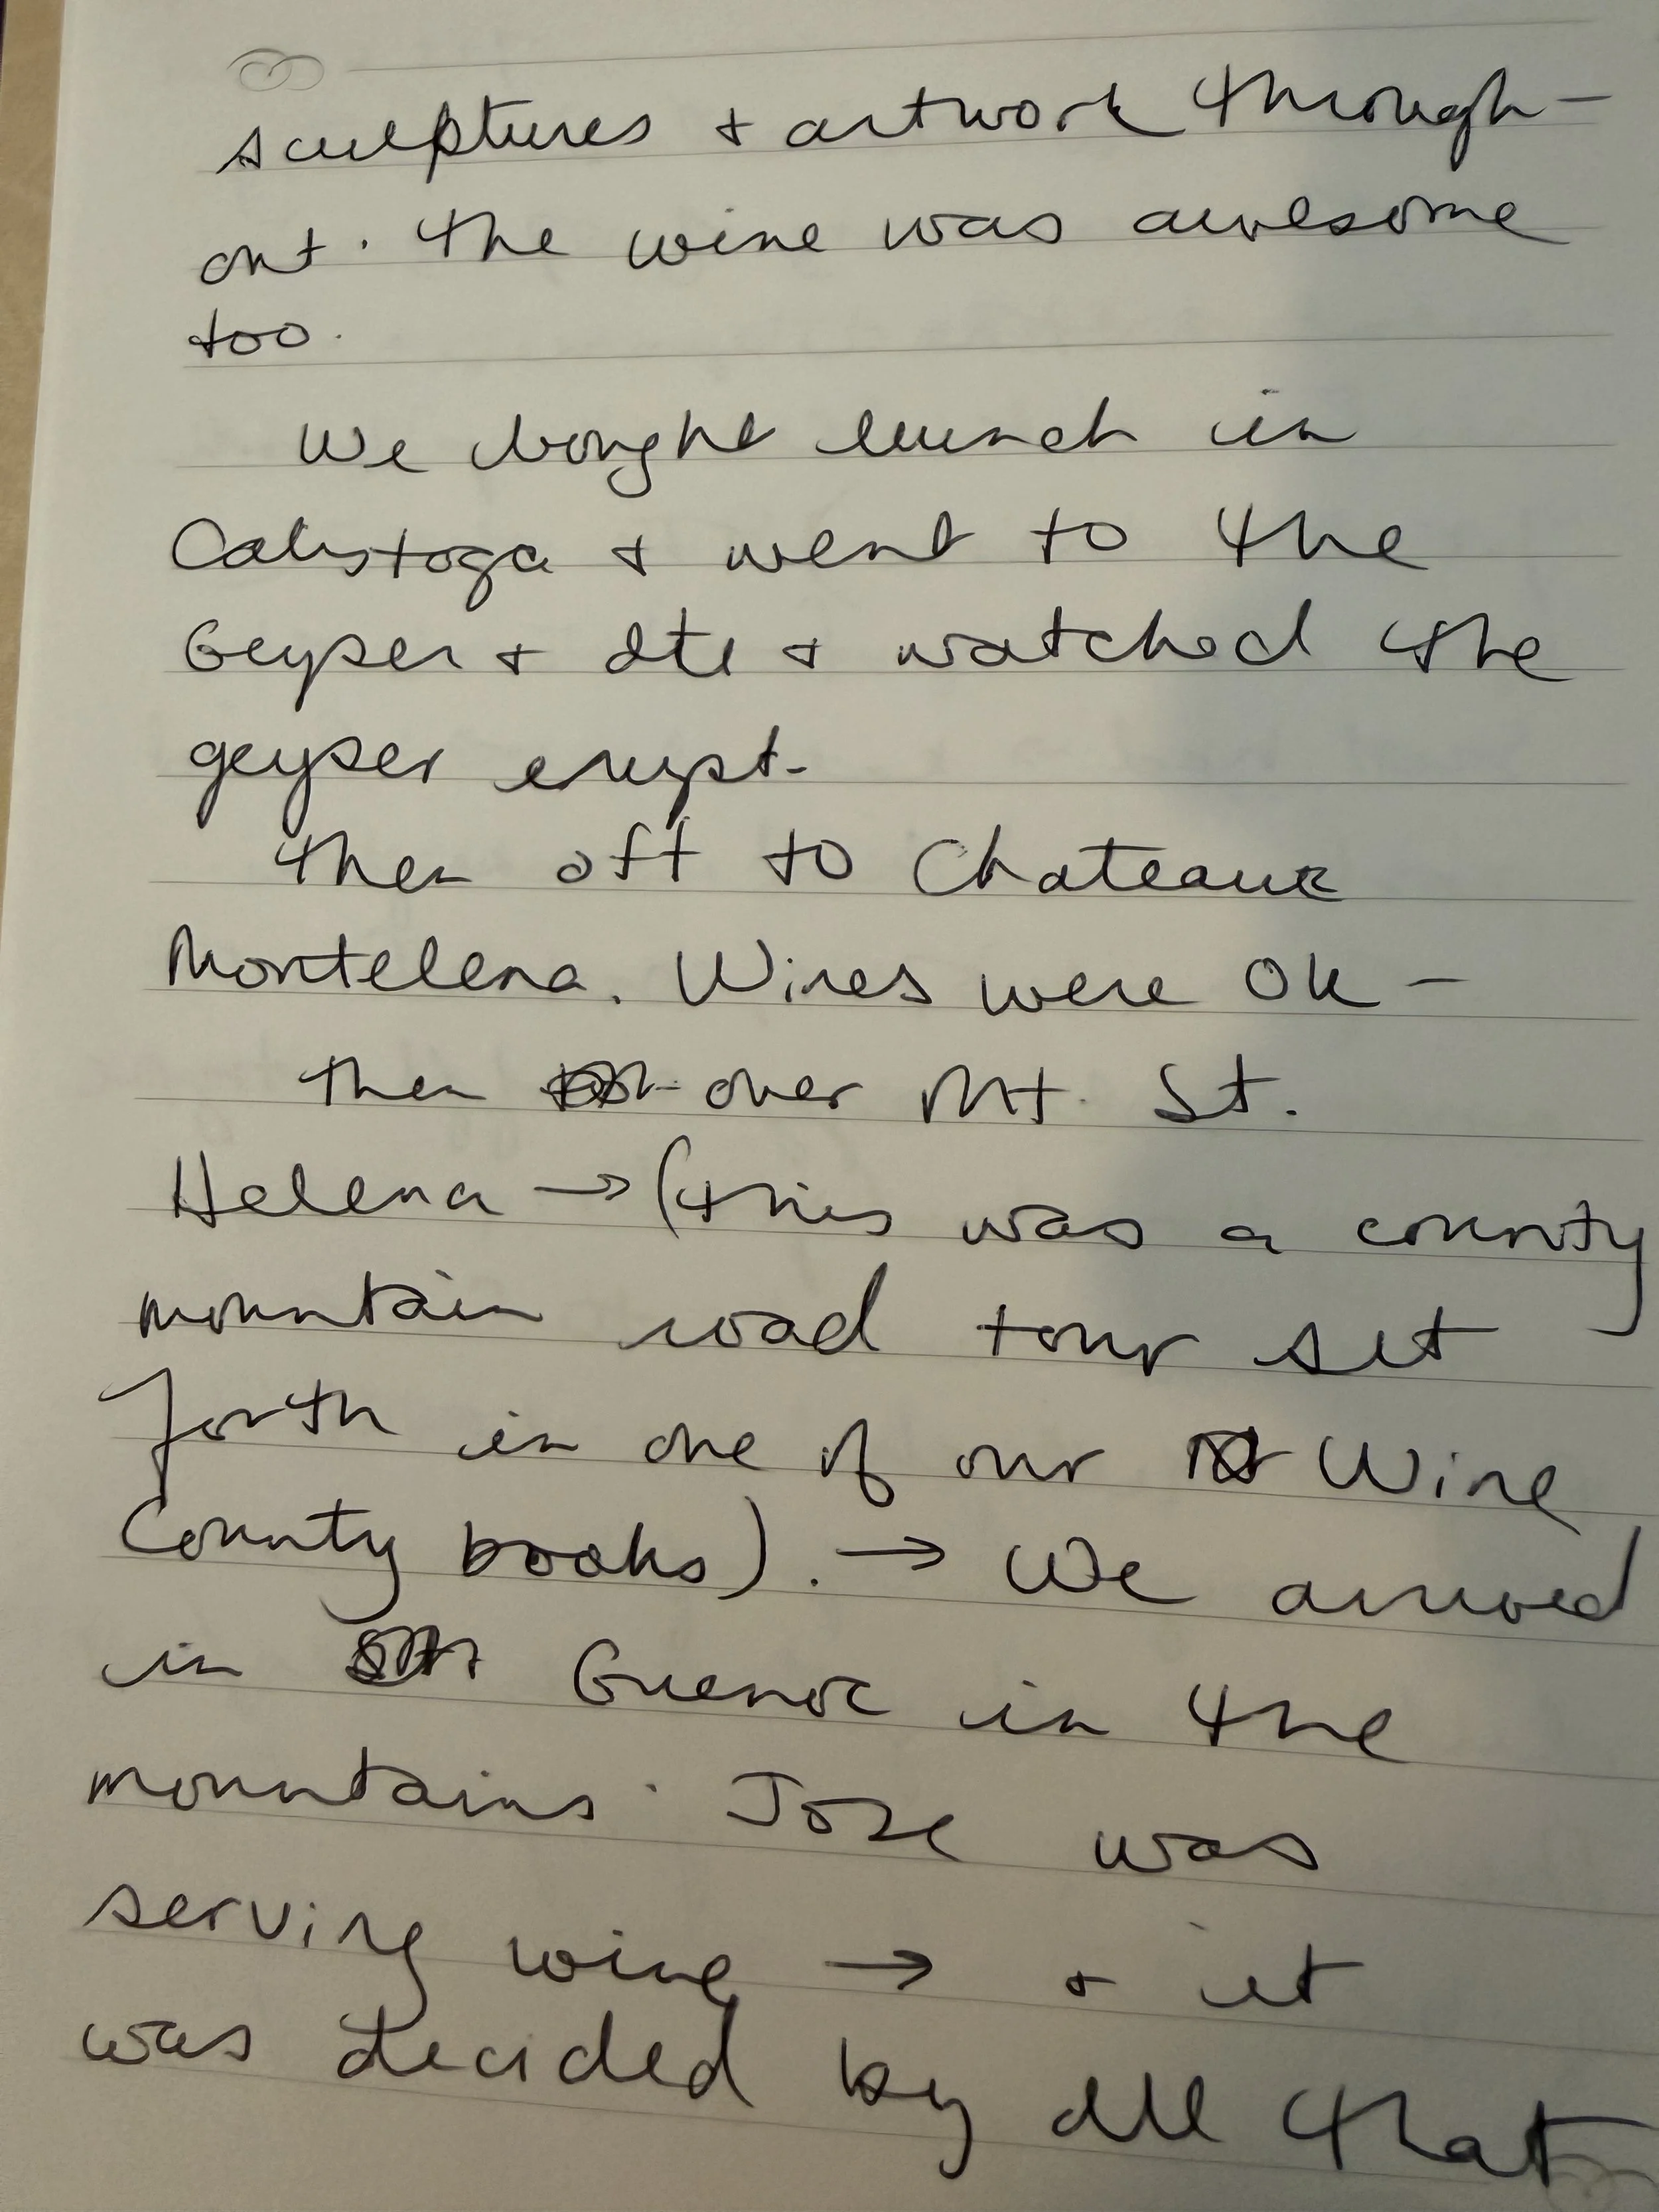 sculptures + artwork through-
out. The wine was awesome
too.
We bought lunch in
Calistoga + went to the
Geyser + ate + watched the
geyser erupt.
Then off to Chateaux
Montelena. Wines were OK -
Then over Mt. St.
Helena → (this was a county
mountain road tour set
forth in one of our Wine
County books). → We arrived
in Guenoc in the
mountains. Jose was
serving wine → + it
was decided by all that